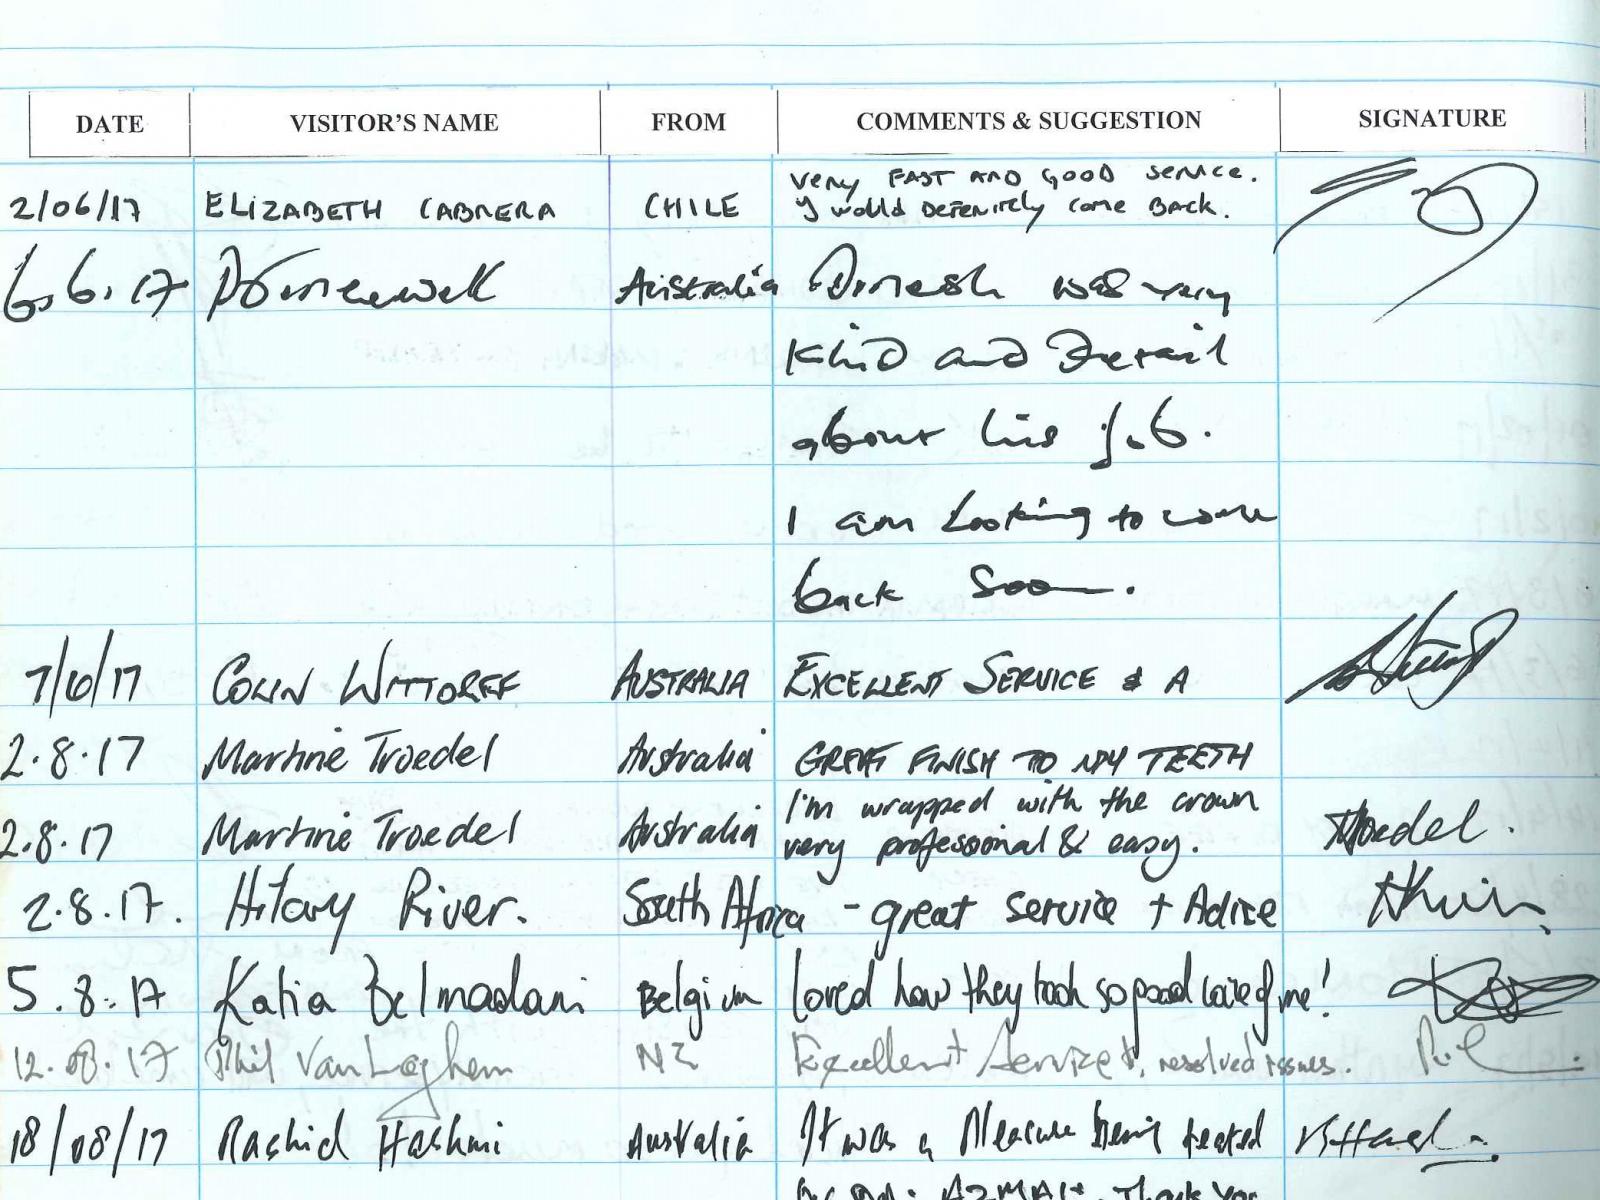 DATE VISITOR'S NAME FROM COMMENTS & SUGGESTION SIGNATURE
2/06/17 ELIZABETH CABRERA CHILE Very FAST AND GOOD SERVICE.
I would DEFENITELY come BACK.
6.6.17 Australia Dinesh was very
kind and Detail
about his job.
I am Looking to come
back soon.
7/6/17 COLIN WITTORFF AUSTRALIA EXCELLENT SERVICE & A
2.8.17 Martine Troedel Australia GREAT FINISH TO MY TEETH
2.8.17 Martine Troedel Australia I'm wrapped with the crown
very professional & easy. Troedel.
2.8.17. Hilary River. South Africa - great service + Advice
5.8.17 Katia Belmadani Belgium loved how they took so good care of me!
12.08.17 Phil Van Loghem NZ Excellent Service, resolved issues.
18/08/17 Rashid Hashmi Australia It was a Pleasure being treated
AZMAH. Thank You